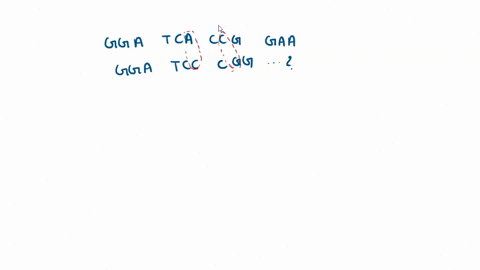 GGA TCA CCG GAA
GGA TCC CGG ...?